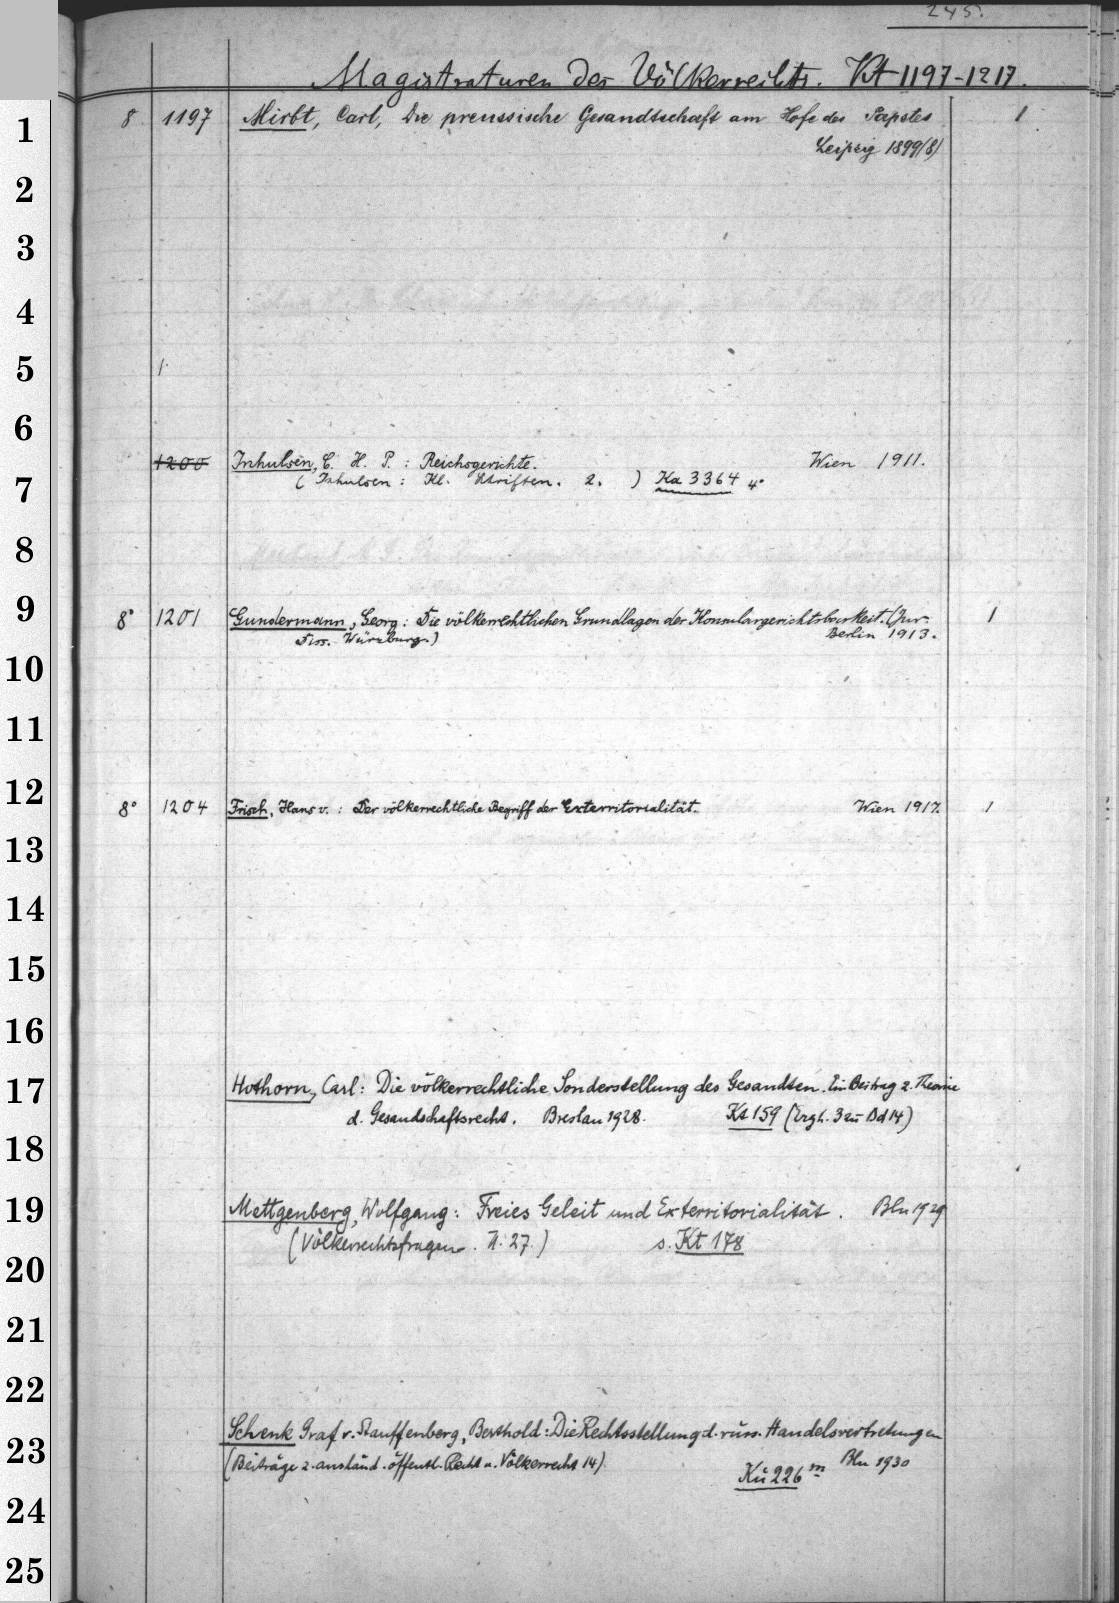 245.
Magistraturen des Völkerrechts. Kt 1197-1217.
1
8 1197 Mirbt, Carl, Die preussische Gesandtschaft am Hofe des Papstes 1
Leipzig 1899(8)
2
3
4
5
6
1200 Inhulsen, C. H. P. : Reichsgerichte. Wien 1911.
7
(Inhulsen : Kl. Schriften. 2. ) Ka 3364 4°
8
9
8° 1201 Gundermann, Georg : Die völkerrechtlichen Grundlagen der Konsulargerichtsbarkeit. (Jur. 1
Diss. Würzburg.) Berlin 1913.
10
11
12
8° 1204 Frisch, Hans v. : Der völkerrechtliche Begriff der Exterritorialität. Wien 1917. 1
13
14
15
16
17
Hothorn, Carl : Die völkerrechtliche Sonderstellung des Gesandten. Ein Beitrag z. Theorie
d. Gesandschaftsrechts. Breslau 1928. Kt 159 (Ergh. 3 zu Bd 14)
18
19
Mettgenberg, Wolfgang : Freies Geleit und Exterritorialität. Bln 1929
(Völkerrechtsfragen. H. 27.) s. Kt 178
20
21
22
Schenk Graf v. Stauffenberg, Berthold : Die Rechtsstellung d. russ. Handelsvertretungen
23
(Beiträge z. ausländ. öffentl. Recht u. Völkerrecht 14) Bln 1930
Kü 226 m
24
25